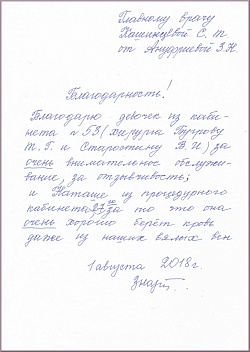 Главному врачу
Кашинцевой С. т.
от Ануфриевой З.Н.
Благодарность!
Благодарю девочек из каби-
нета №53 (хирурга Бурову
Т. Г. и Старожтину В. И.) за
очень внимательное обслужи-
вание, за отзывчивость;
и Наташе из процедурного
кабинета за то это она
очень хорошо берёт кровь
даже из наших вялых вен
1 августа 2018г.